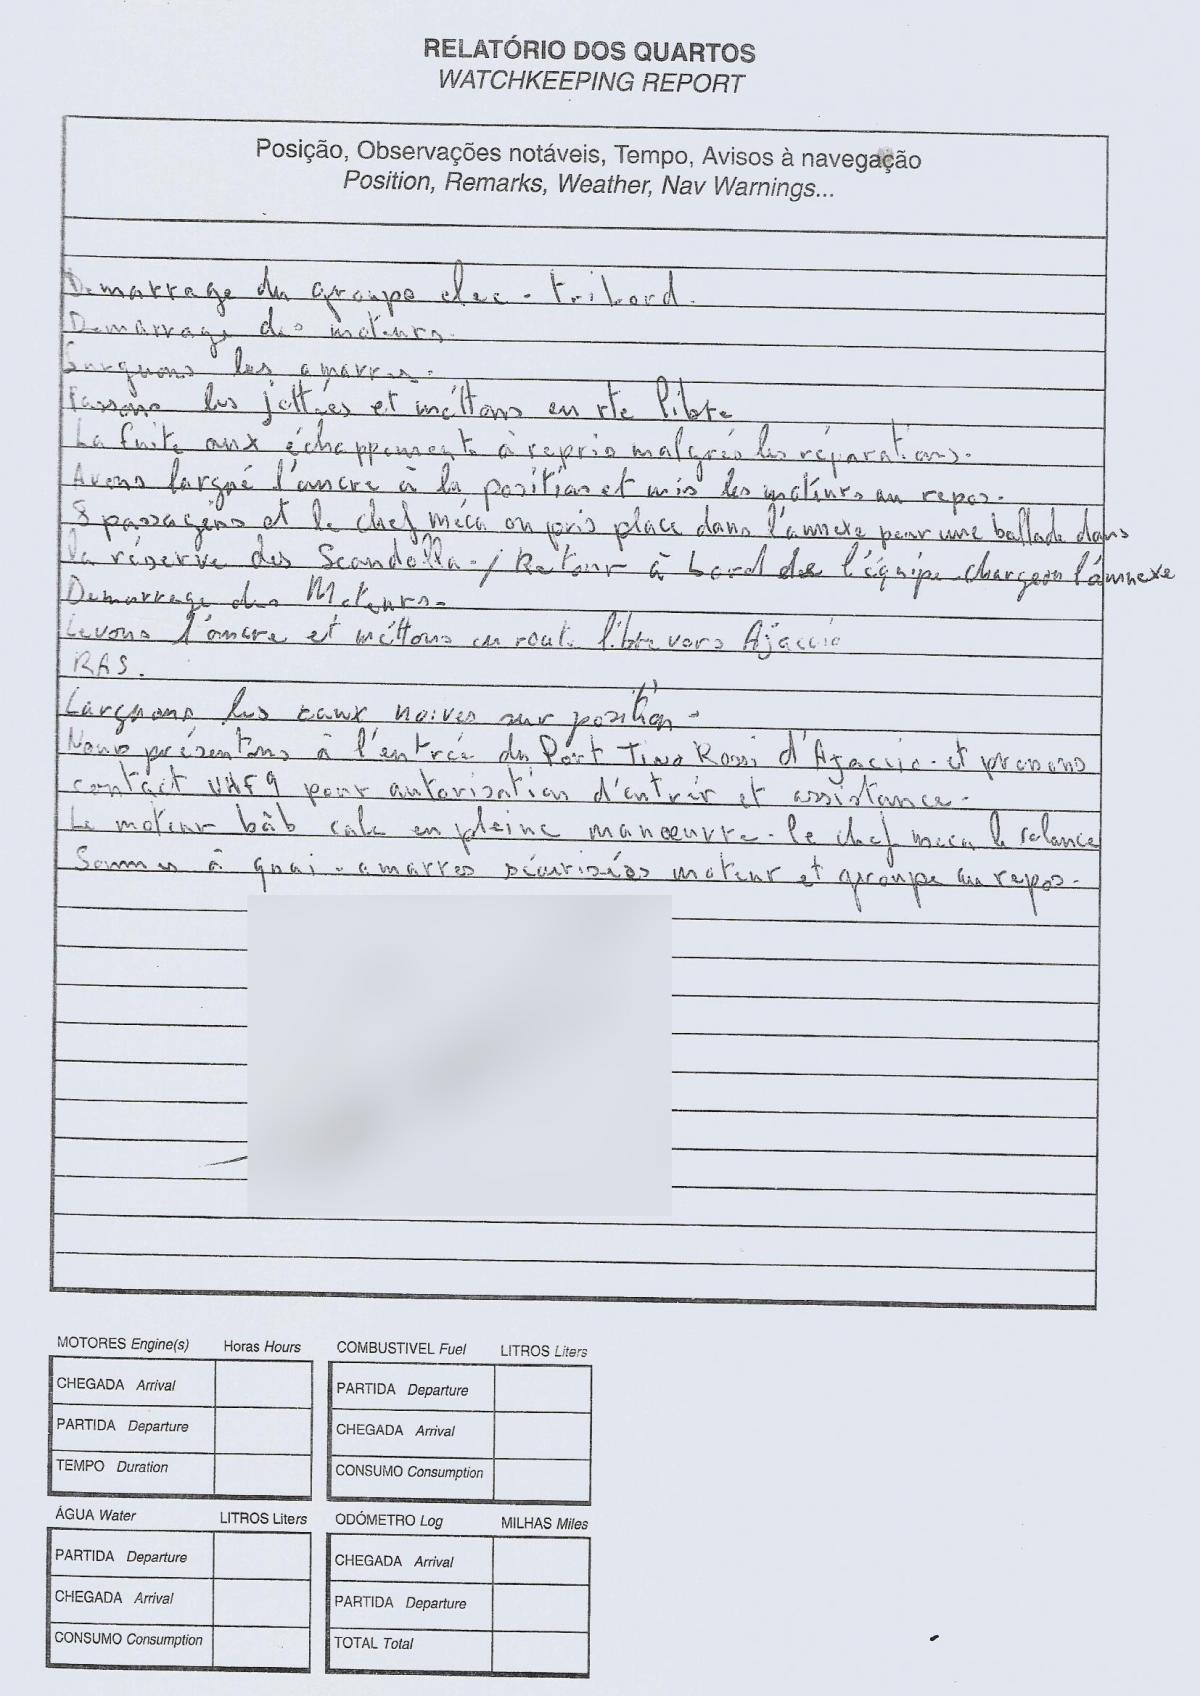 RELATÓRIO DOS QUARTOS
WATCHKEEPING REPORT
Posição, Observações notáveis, Tempo, Avisos à navegação
Position, Remarks, Weather, Nav Warnings...
Demarrage du groupe elec - tribord.
Demarrage des moteurs.
les amarres.
Passons les jettées et méttons en rte libre
La fuite aux échappements à repris malgrés les réparations.
Avons largué l'ancre à la position et mis les moteurs au repos.
8 passagers et le chef méca on pris place dans l'annexe pour une ballade dans
la réserve des Scandolla - / Retour à bord de l'équipe - chargeon l'annexe
Demarrage des Moteurs -
Levons l'ancre et méttons en route libre vers Ajaccio
RAS.
Larguons les eaux noires sur position -
Nous présentons à l'entrée du Port Tino Rossi d'Ajaccio - et prenons
contact VHF 9 pour autorisation d'entrer et assistance -
Le moteur bâb cale en pleine manœuvre - le chef meca le relance
Sommes à quai - amarres sécurisées moteur et groupe au repos -
MOTORES Engine(s) Horas Hours
CHEGADA Arrival
PARTIDA Departure
TEMPO Duration
COMBUSTIVEL Fuel LITROS Liters
PARTIDA Departure
CHEGADA Arrival
CONSUMO Consumption
ÁGUA Water LITROS Liters
PARTIDA Departure
CHEGADA Arrival
CONSUMO Consumption
ODÓMETRO Log MILHAS Miles
CHEGADA Arrival
PARTIDA Departure
TOTAL Total